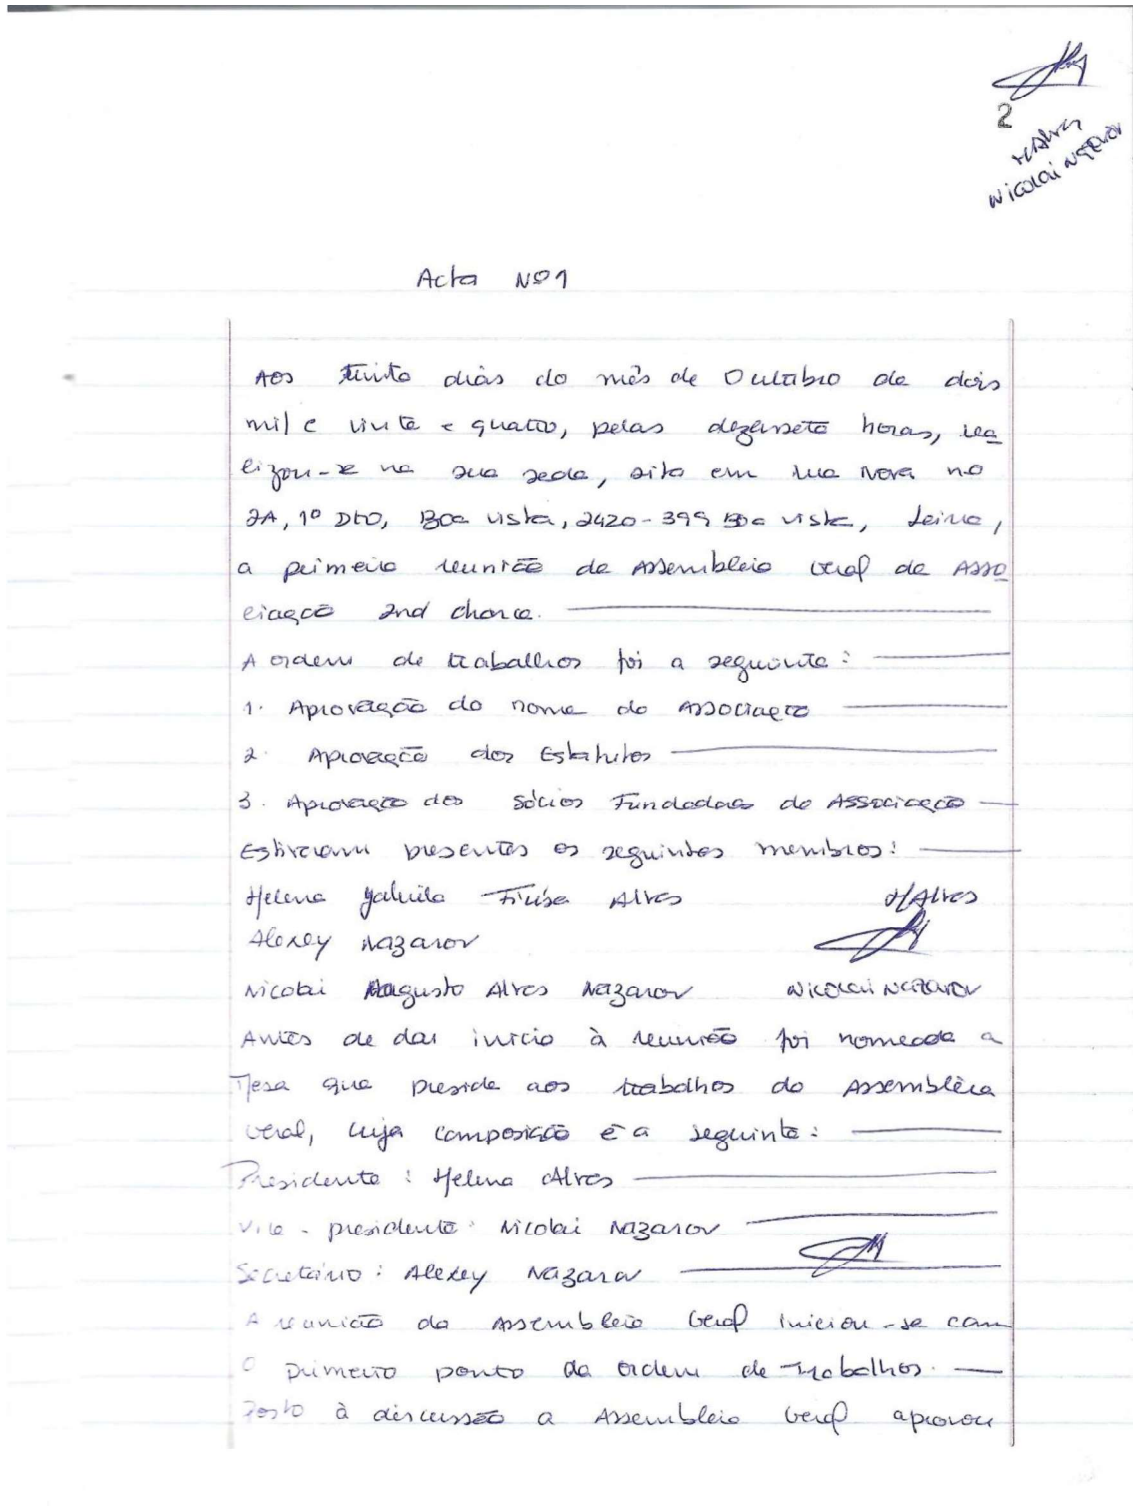 2
HAlves
Nicolai Nazarov
Acta Nº1
Aos trinta dias do mês de Outubro de dois
mil e vinte e quatro, pelas dezassete horas, rea
lizou-se na sua sede, sita em rua Nova no
2A, 1º Dto, Boa Vista, 2420-399 Boa Vista, Leiria,
a primeira reunião da Assembleia Geral da Asso
ciação 2nd chance.
A ordem de trabalhos foi a seguinte:
1. Aprovação do nome da Associação
2. Aprovação dos Estatutos
3. Aprovação dos Sócios Fundadores da Associação
Estiveram presentes os seguintes membros:
Helena Gabriela Alves HAlves
Alexey Nazarov
Nicolai Augusto Alves Nazarov Nicolai Nazarov
Antes de dar início à reunião foi nomeada a
Mesa que preside aos trabalhos da Assembleia
Geral, cuja composição é a seguinte:
Presidente: Helena Alves
Vice-presidente: Nicolai Nazarov
Secretário: Alexey Nazarov
A reunião da Assembleia Geral iniciou-se com
o primeiro ponto da ordem de Trabalhos.
Posto à discussão a Assembleia Geral aprovou